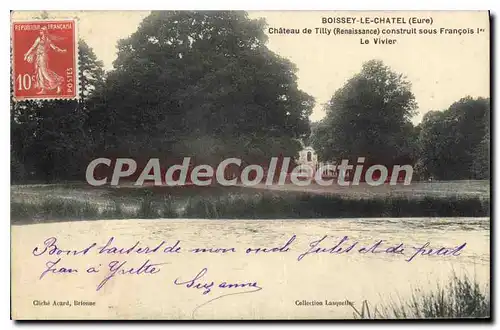 BOISSEY-LE-CHATEL (Eure)
Château de Tilly (Renaissance) construit sous François Ier
Le Vivier
RÉPUBLIQUE FRANÇAISE
10c POSTES
CPAdeCollection.com
Bons baisers de mon oncle Jules et de petit
Jean à Yvette
Suzanne
Cliché Acard, Brionne
Collection Lanquetier